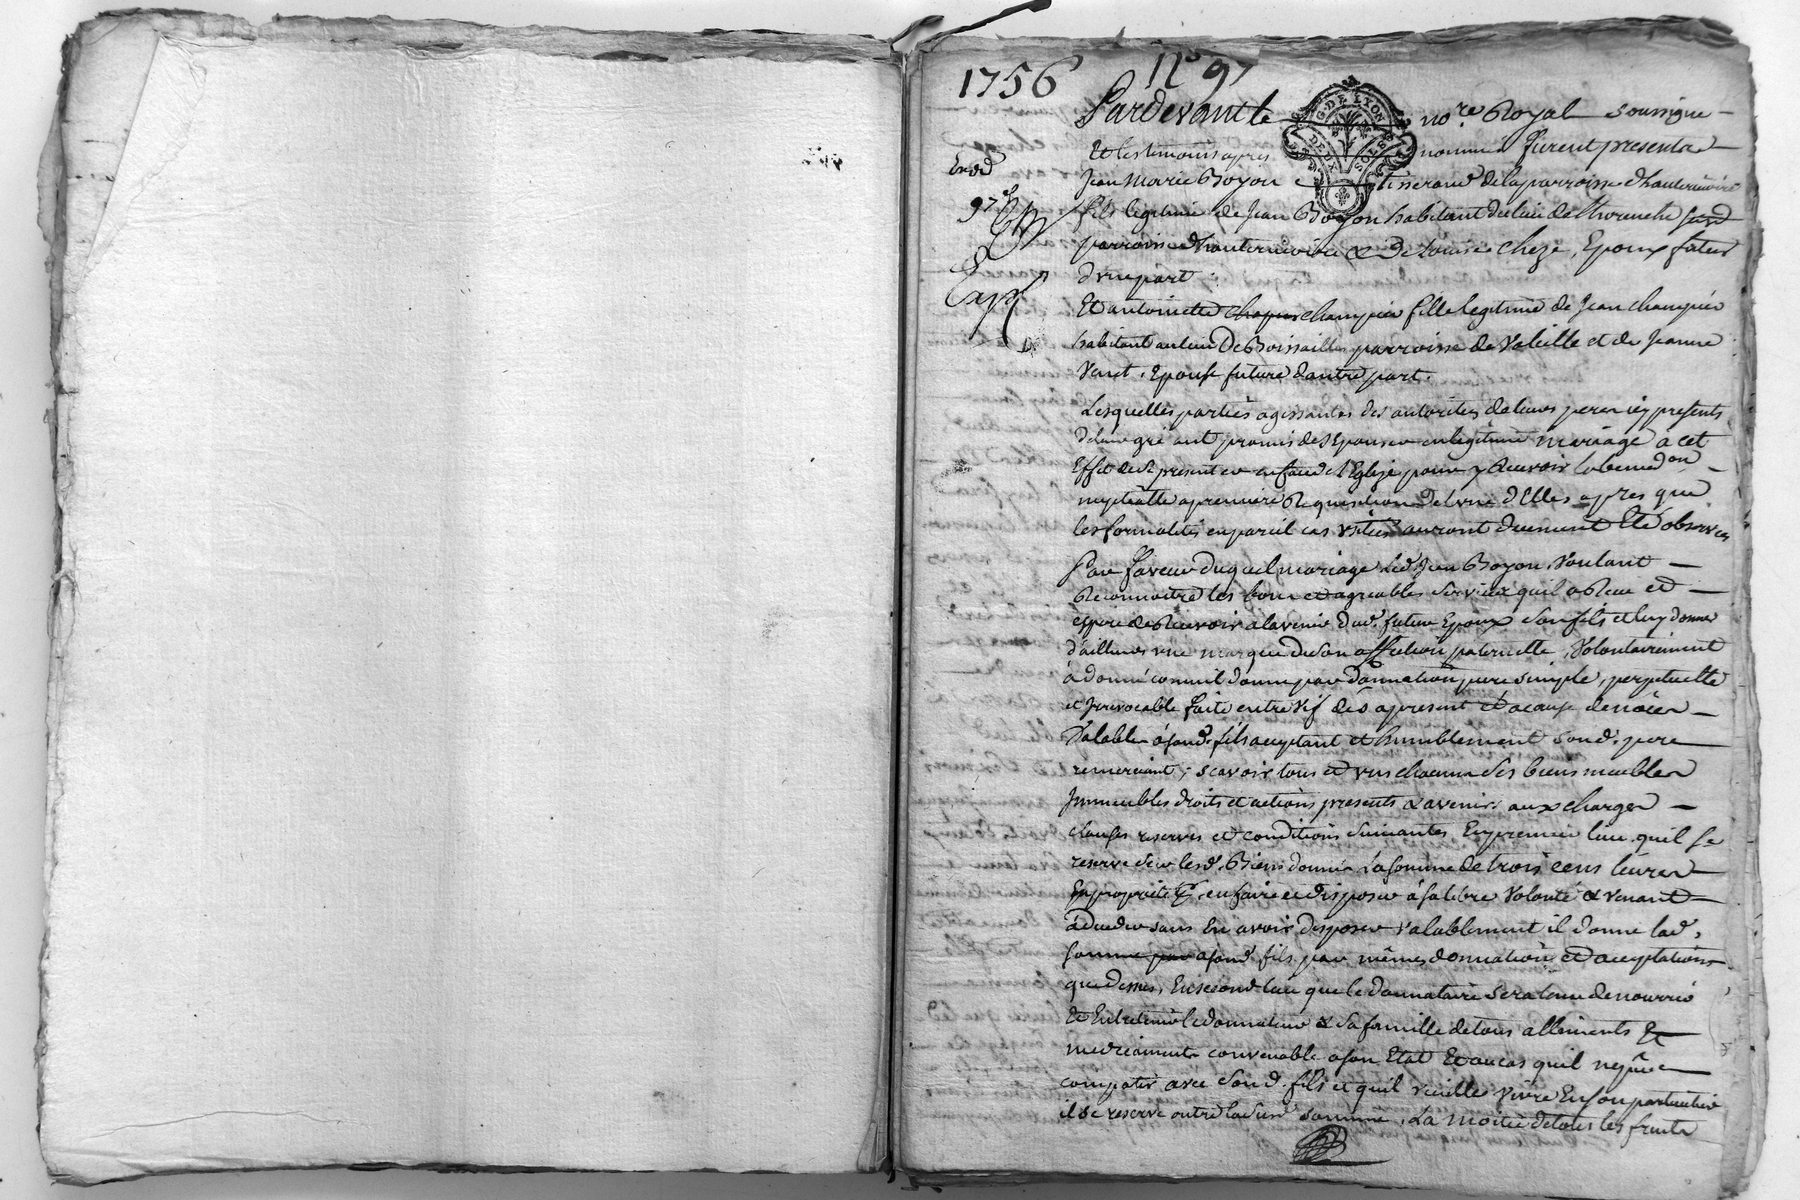 1756 N° 97
Pardevant le no.re Royal soussigne
G. DE LYON
DEUX SOLS
Et les temoins apres nommes furent presents
Jean Marie Boyon tisserand de la parroisse d'hauterivoire
97
fils legitime de Jean Boyon habitant du lieu de
parroisse d'hauterivoire & de Louise Cheze, Epoux futur
d'une part.
Exp.
Et antoinette champier fille legitime de Jean champier
habitant au lieu De Boissailles parroisse de Valeille et de Jeanne
Venet, Epouse future d'autre part.
Lesquelles parties agissantes des autorites de leurs peres icy presents
de leur gré ont promis de s'Epouser en legitime mariage a cet
Effet de se presenter en face d'Eglise pour y Recevoir la bened.on
nuptialle a premiere Requisition de l'une d'Elles apres que
les formalités en pareil cas usitées auront duement Eté observées
Par faveur duquel mariage led. Jean Boyon voulant
Reconnoitre les bons et agreables services qu'il a Receu et
espere de Recevoir a l'avenir dud. futur Epoux son fils et luy donner
d'ailleurs une marque de son affection paternelle, Volontairement
à donné comme il donne par donnation pure simple, perpetuelle
et Irrevocable faite entre vif dés apresent et a cause de nôces
Valable à sond. fils acceptant et humblement sond. pere
remerciant; scavoir tous et uns chacuns ses biens meubles
Immeubles droits et actions presents & avenir, aux charges
clauses reserves et conditions suivantes En premier lieu qu'il se
reserve sur lesd. Biens donnés La somme de trois cens livres
En propriété pr. en faire et disposer à sa libre Volonté & venant
à deceder sans En avoir disposer valablement il donne lad.
somme a sond. fils par mêmes donnation et acceptations
que dessus, En second lieu que le Donnataire sera tenu de nourrir
Et Entretenir le donnateur & sa famille de tous alliments &
medicaments convenable a son Etat Et au cas qu'il ne put
compatir avec sond. fils et qu'il veuille vivre En son particulier
il se reserve outre la susd. somme, La moitié de tous les fruits